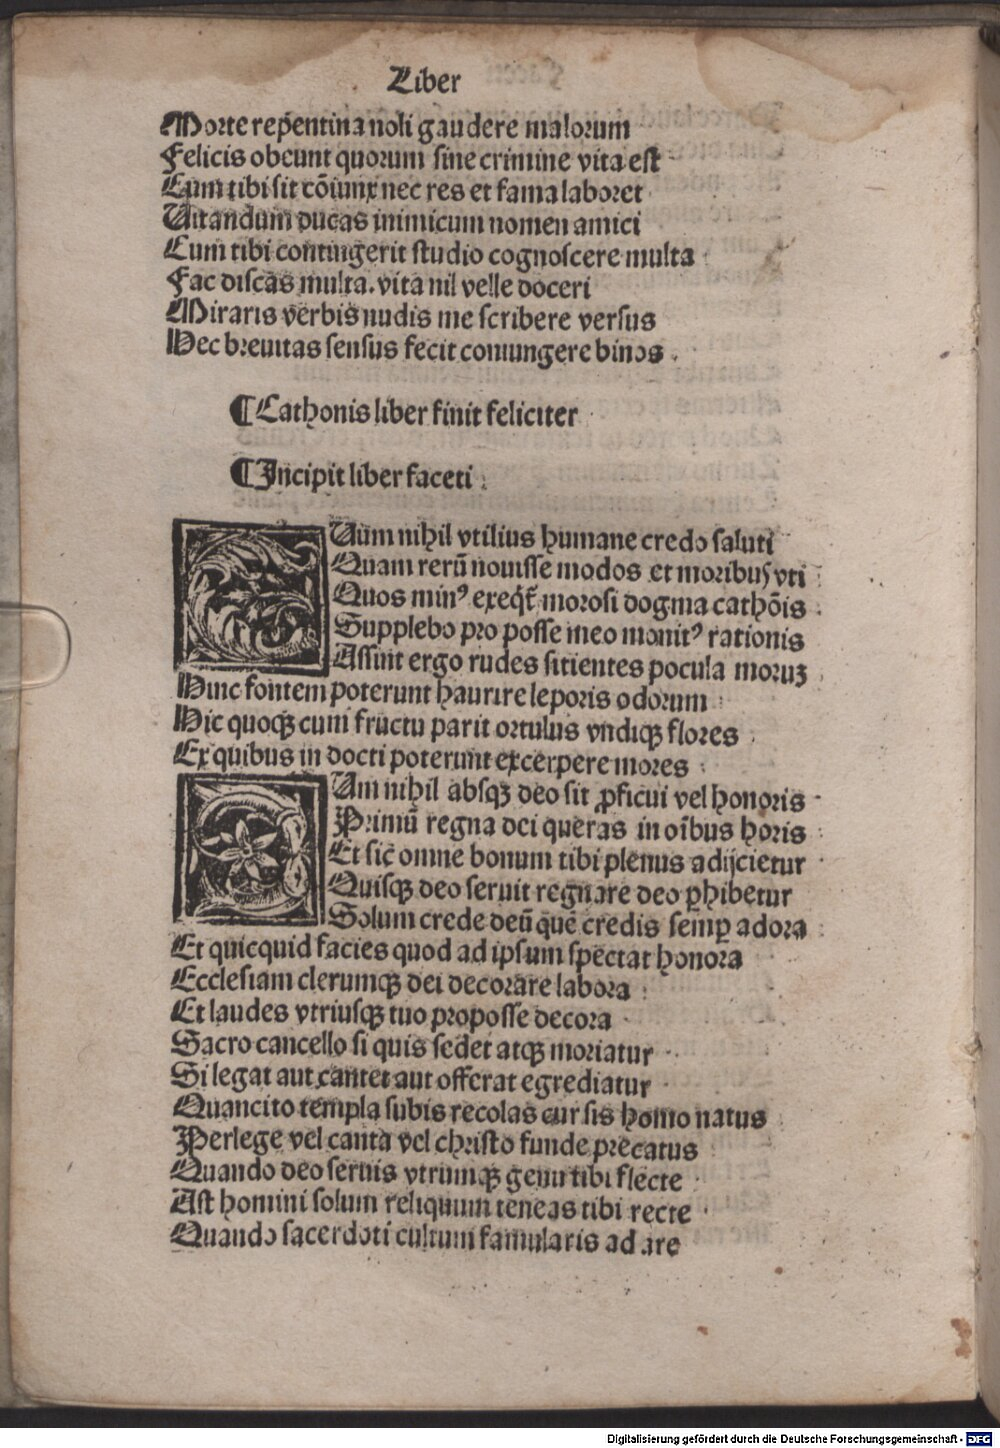 Liber
Morte repētina noli gaudere malorum
Felicis obeunt quorum sine crimine vita est
Cum tibi sit cōiunx nec res et fama laboret
Uitandum ducas inimicum nomen amici
Cum tibi contingerit studio cognoscere multa
Fac discas multa. vita nil velle doceri
Miraris verbis nudis me scribere versus
Hec breuitas sensus fecit coniungere binos .
¶ Cathonis liber finit feliciter
¶ Incipit liber faceti .
Uum nihil vtilius humane credo saluti
Quam rerū nouisse modos et moribus vti
Quos minꝰ exeqt̄ morosi dogma cathōis .
Supplebo pro posse meo monitꝰ rationis
Assint ergo rudes sitientes pocula moruꝫ
Hinc fontem poterunt haurire leporis odorum
Hic quoqꝫ cum fructu parit ortulus vndiqꝫ flores
Ex quibus in docti poterunt excerpere mores
Um nihil absqꝫ deo sit ꝓficui vel honoris
Primū regna dei queras in oībus horis
Et sic̄ omne bonum tibi plenus adijcietur
Quisqꝫ deo seruit regnare deo ꝑhibetur
Solum crede deū quē credis semꝑ adora
Et quicquid facies quod ad ipsum spectat honora
Ecclesiam clerumqꝫ dei decorare labora
Et laudes vtriusqꝫ tuo proposse decora
Sacro cancello si quis sedet atqꝫ moriatur
Si legat aut cantet aut offerat egrediatur
Quancito templa subis recolas cur sis homo natus
Perlege vel canta vel christo funde precatus
Quando deo seruis vtrumqꝫ genu tibi flecte
Ast homini solum reliquum teneas tibi recte
Quando sacerdoti cultum famularis ad are
Digitalisierung gefördert durch die Deutsche Forschungsgemeinschaft - DFG